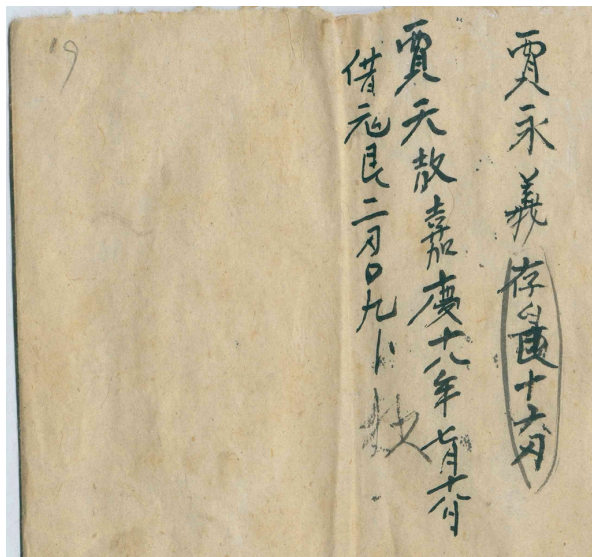 賈永義存艮十六刄
賈天散嘉慶十八年七月十六日
借元艮二刄〇九卜
19